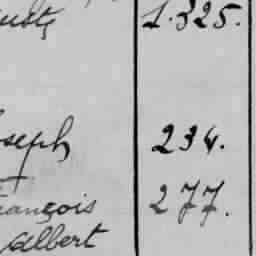 1.325.
oseph 234.
rançois 277.
Albert